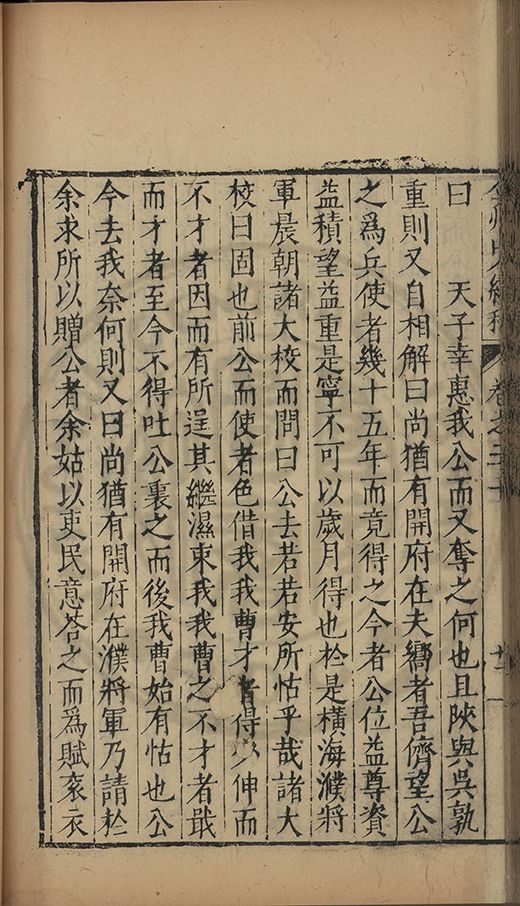 州山人續稿 卷之三十
曰 天子幸惠我公而又奪之何也且陝與吳孰
重則又自相解曰尚猶有開府在夫嚮者吾儕望公
之爲兵使者幾十五年而竟得之今者公位益尊資
益積望益重是寧不可以歲月得也於是橫海濮將
軍晨朝諸大校而問曰公去若若安所怙乎哉諸大
校曰固也前公而使者色借我我曹才者得以伸而
不才者因而有所逞其繼濕束我我曹之不才者戢
而才者至今不得吐公裏之而後我曹始有怙也公
今去我奈何則又曰尚猶有開府在濮將軍乃請於
余求所以贈公者余姑以吏民意荅之而爲賦衮衣